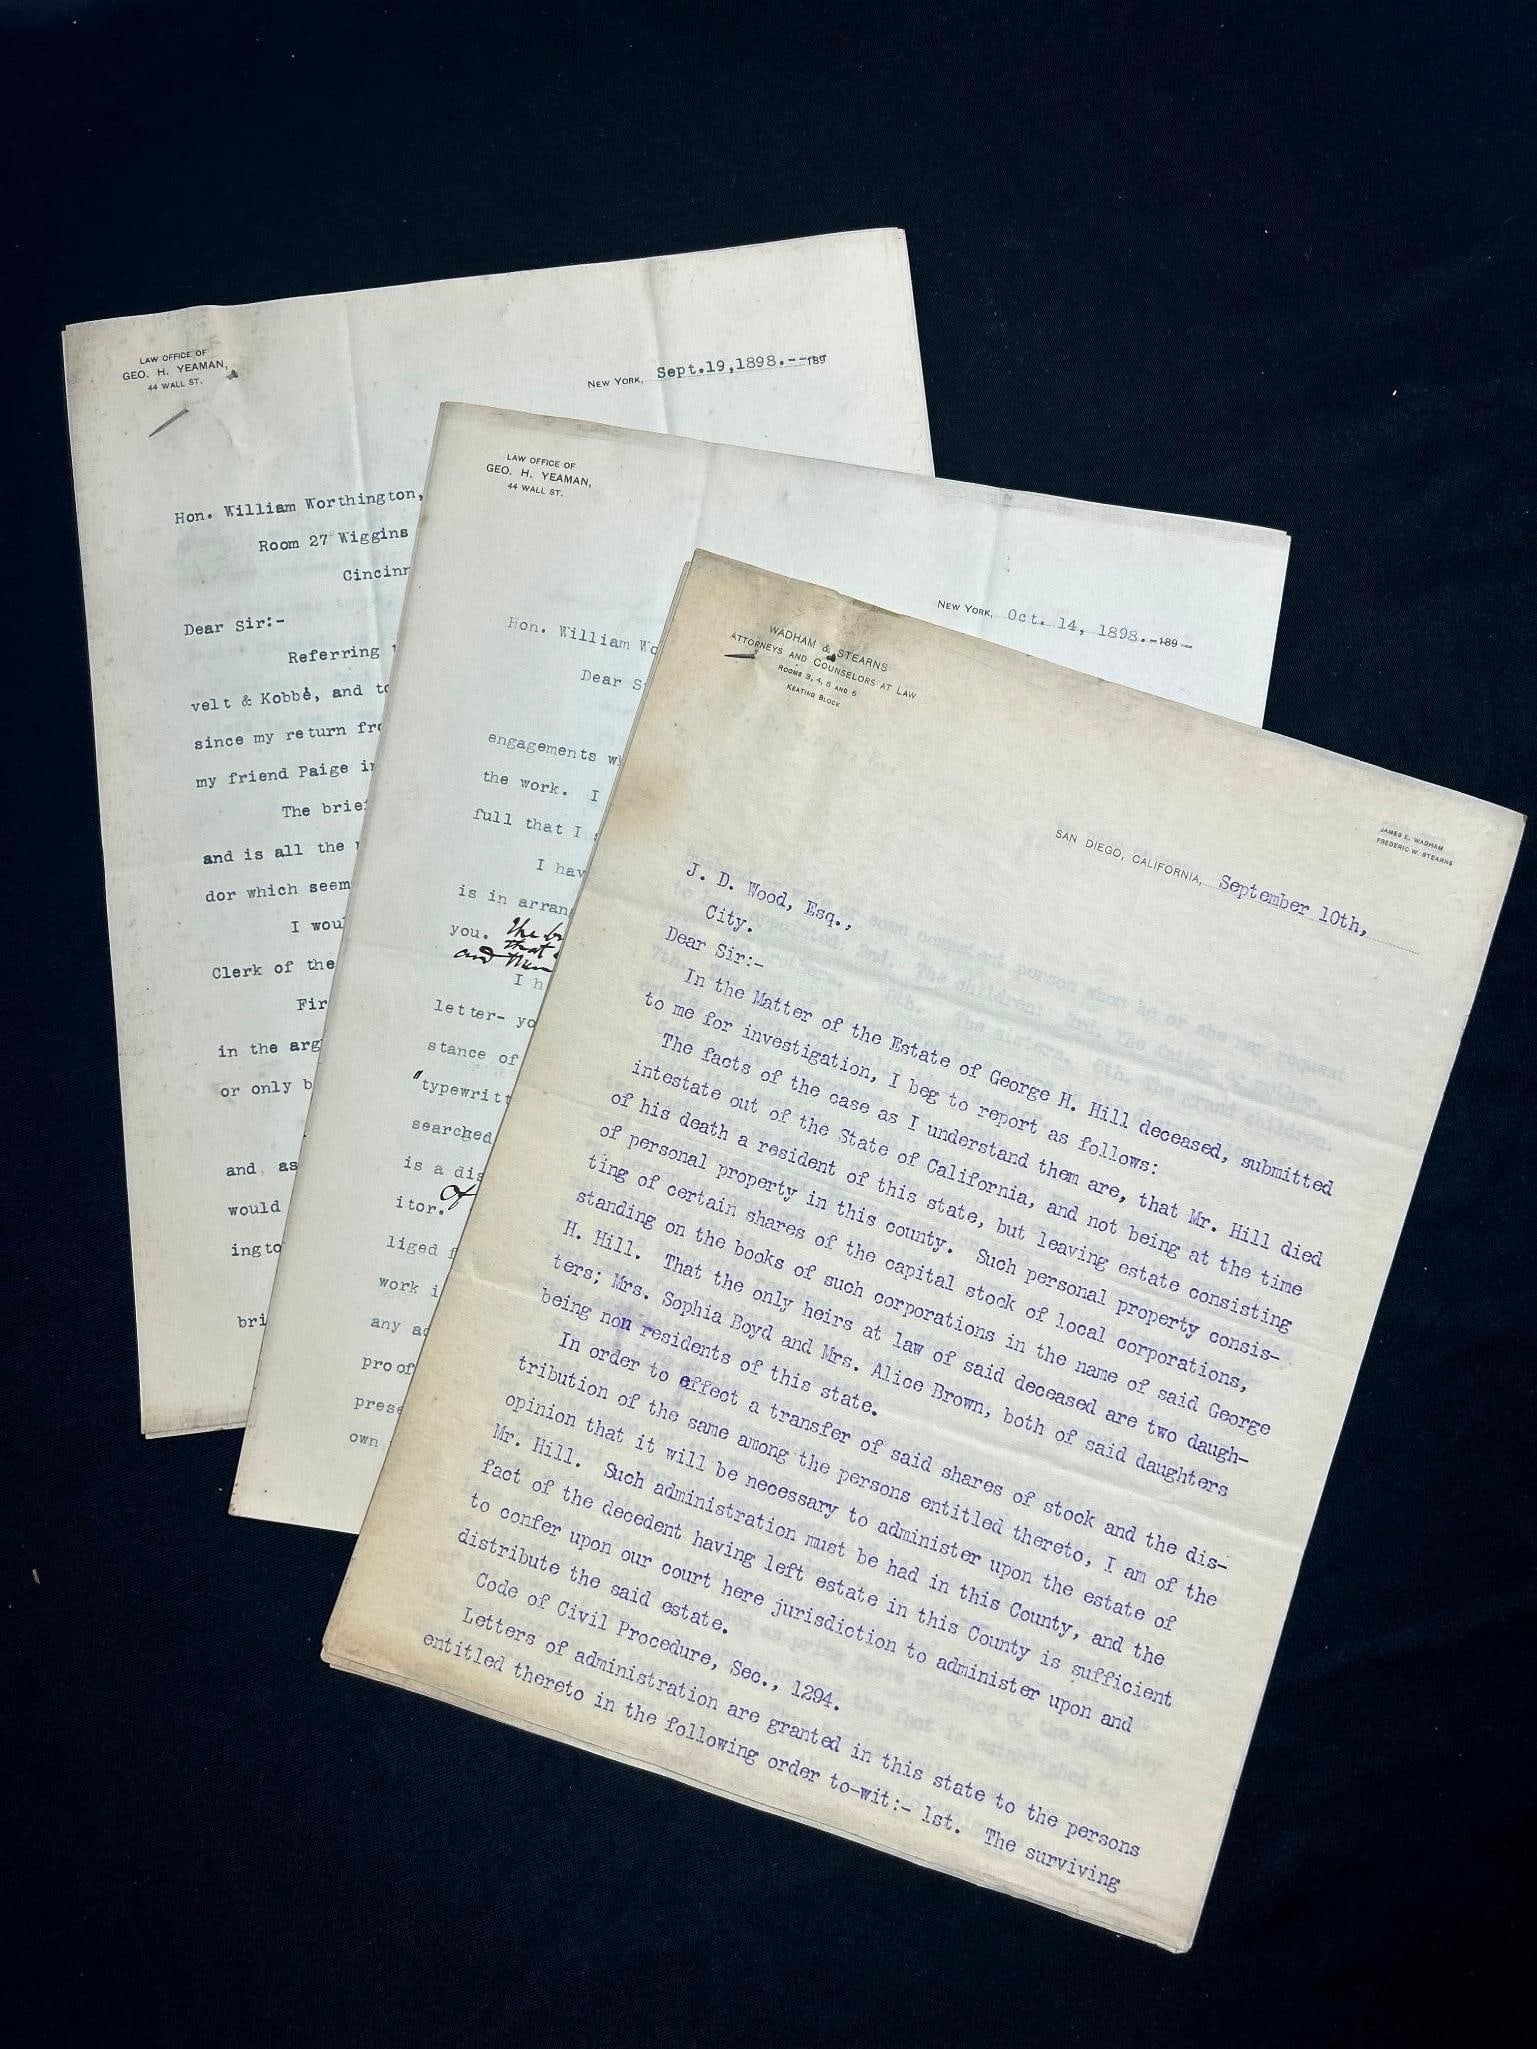 LAW OFFICE OF
GEO. H. YEAMAN,
44 WALL ST.
NEW YORK, Sept.19,1898.--189
Hon. William Worthington,
Room 27 Wiggins
Cincinn
Dear Sir:-
Referring
velt & Kobbé, and to
since my return fro
my friend Paige in
The brief
and is all the
dor which seem
I woul
Clerk of the
Fir
in the arg
or only b
and, as
would
ingto
bri
LAW OFFICE OF
GEO. H. YEAMAN,
44 WALL ST.
NEW YORK, Oct. 14, 1898.-189-
Hon. William Wo
Dear S
engagements wh
the work. I
full that I
I hav
is in arran
you. the br
that
and then
I h
letter- yo
stance of
"typewritt
searched
is a dis
itor. Of
liged f
work i
any ad
proof
prese
own
WADHAM & STEARNS
ATTORNEYS AND COUNSELORS AT LAW
ROOMS 3, 4, 5 AND 6
KEATING BLOCK
JAMES E. WADHAM
FREDERIC W. STEARNS
SAN DIEGO, CALIFORNIA, September 10th,
J. D. Wood, Esq.,
City.
Dear Sir:-
In the Matter of the Estate of George H. Hill deceased, submitted
to me for investigation, I beg to report as follows:
The facts of the case as I understand them are, that Mr. Hill died
intestate out of the State of California, and not being at the time
of his death a resident of this state, but leaving estate consisting
of personal property in this county. Such personal property consis-
ting of certain shares of the capital stock of local corporations,
standing on the books of such corporations in the name of said George
H. Hill. That the only heirs at law of said deceased are two daugh-
ters; Mrs. Sophia Boyd and Mrs. Alice Brown, both of said daughters
being non residents of this state.
In order to effect a transfer of said shares of stock and the dis-
tribution of the same among the persons entitled thereto, I am of the
opinion that it will be necessary to administer upon the estate of
Mr. Hill. Such administration must be had in this County, and the
fact of the decedent having left estate in this County is sufficient
to confer upon our court here jurisdiction to administer upon and
distribute the said estate.
Code of Civil Procedure, Sec., 1294.
Letters of administration are granted in this state to the persons
entitled thereto in the following order to-wit:- 1st. The surviving